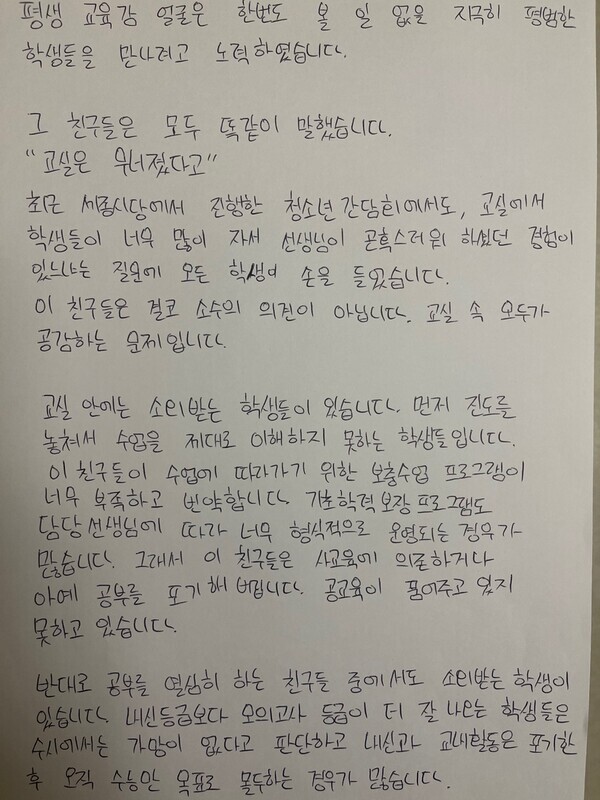 평생 교육감 얼굴은 한번도 볼 일 없을 지극히 평범한
학생들을 만나려고 노력하였습니다.
그 친구들은 모두 똑같이 말했습니다.
“교실은 무너졌다고”
최근 세종시당에서 진행한 청소년 간담회에서도, 교실에서
학생들이 너무 많이 자서 선생님이 곤혹스러워 하셨던 경험이
있느냐는 질문에 모든 학생이 손을 들었습니다.
이 친구들은 결코 소수의 의견이 아닙니다. 교실 속 모두가
공감하는 문제입니다.
교실 안에는 소외받는 학생들이 있습니다. 먼저 진도를
놓쳐서 수업을 제대로 이해하지 못하는 학생들입니다.
이 친구들이 수업에 따라가기 위한 보충수업 프로그램이
너무 부족하고 빈약합니다. 기초학력 보장 프로그램도
담당 선생님에 따라 너무 형식적으로 운영되는 경우가
많습니다. 그래서 이 친구들은 사교육에 의존하거나
아예 공부를 포기해 버립니다. 공교육이 품어주고 있지
못하고 있습니다.
반대로 공부를 열심히 하는 친구들 중에서도 소외받는 학생이
있습니다. 내신등급보다 모의고사 등급이 더 잘 나오는 학생들은
수시에서는 가망이 없다고 판단하고 내신과 교내활동은 포기한
후 오직 수능만 목표로 몰두하는 경우가 많습니다.